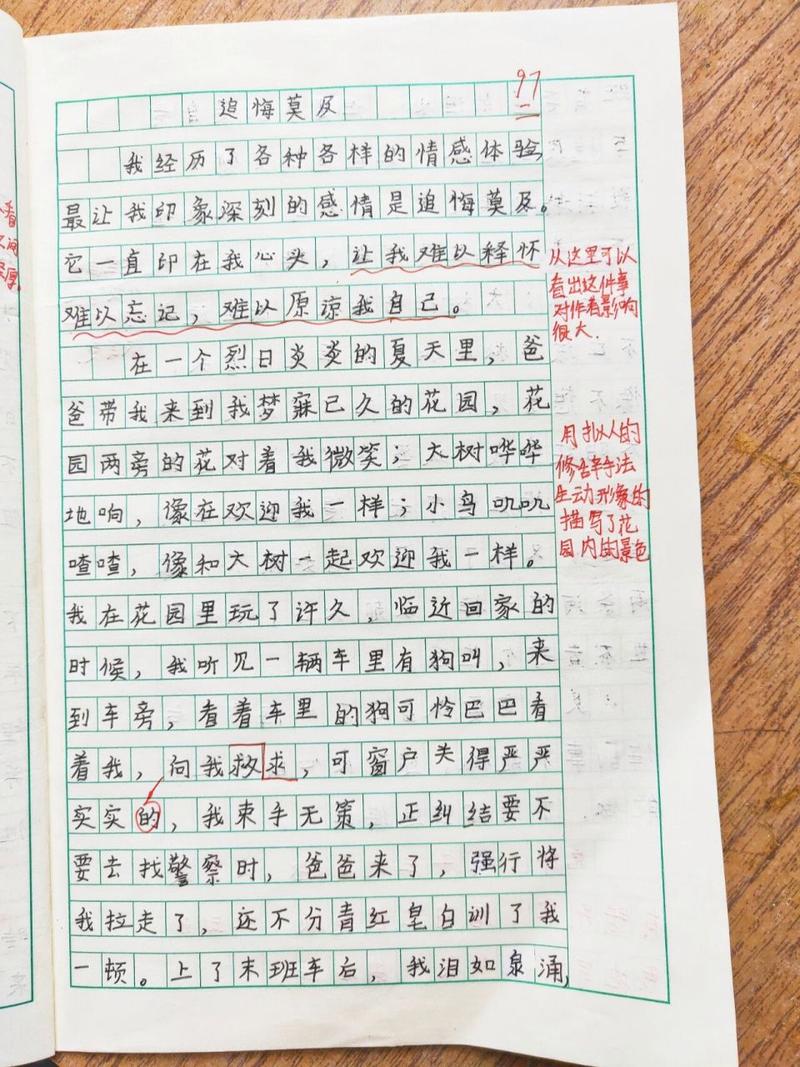 97
追悔莫及
我经历了各种各样的情感体验,
最让我印象深刻的感情是追悔莫及。
它一直印在我心头，让我难以释怀
难以忘记，难以原谅我自己。
从这里可以
看出这件事
对作者影响
很大.
在一个烈日炎炎的夏天里，爸
爸带我来到我梦寐已久的花园，花
园两旁的花对着我微笑；大树哗哗
地响，像在欢迎我一样；小鸟叽叽
喳喳，像和大树一起欢迎我一样。
用拟人的
修辞手法
生动形象的
描写了花
园内的景色
我在花园里玩了许久，临近回家的
时候，我听见一辆车里有狗叫，来
到车旁，看着车里的狗可怜巴巴看
着我，向我救求，可窗户关得严严
实实的，我束手无策，正纠结要不
要去找警察时，爸爸来了，强行将
我拉走了，还不分青红皂白训了我
一顿。上了末班车后，我泪如泉涌,